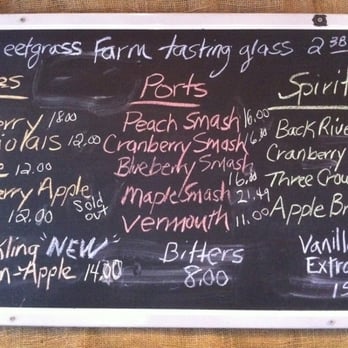 eetgrass Farm tasting glass 2 38
es
Ports
Spirit
erry 18.00
Peach Smash 16.00
Back Rive
iolais 12.00
Cranberry Smash
Cranberry
e
Blueberry Smash
12.00
16.00
Three Crow
erry Apple
Maple Smash 21.49
12.00 Sold out
Vermouth 11.00
Apple Br
kling "NEW"
Bitters
Vanilla
n-Apple 14.00
8.00
Extra